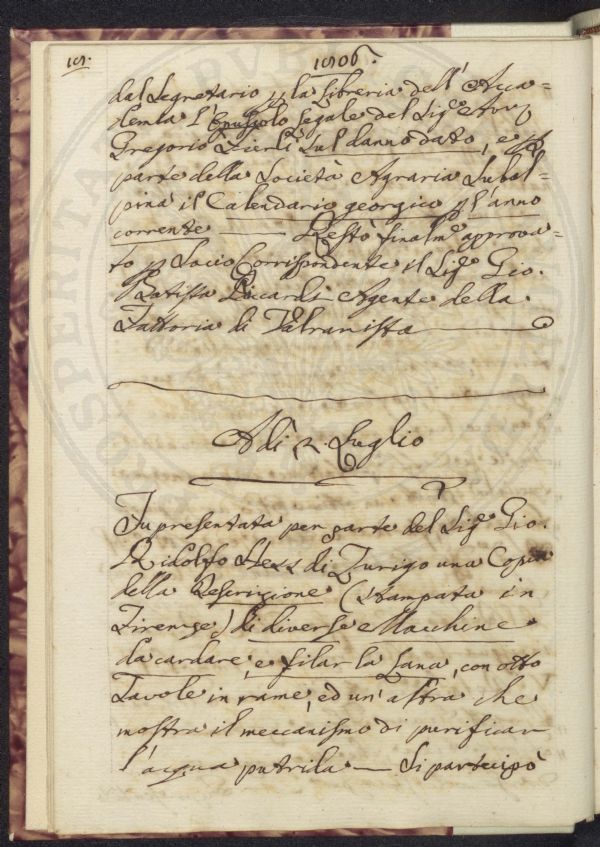 1806.
dal Segretario p la Libreria dell' Acca=
demia l' Opuscolo legale del Sig.e Avv.
Gregorio Fierli Sul danno dato, e p
parte della Società Agraria Subal=
pina il Calendario georgico p l'anno
corrente —— Restò finalm.e approva=
to p Socio Corrispondente il Sig.e Gio.
Batista Agente della
Fattoria di Valtranista ——
Adì 2. Luglio
Fu presentata per parte del Sig.e Gio.
Ridolfo Hess di Zurigo una Copia
della Descrizione (stampata in
Firenze) di diverse Macchine
da cardare, e filar la Lana, con otto
Tavole in rame, ed un' altra che
mostra il meccanismo di purificar
l'acqua putrida — Si partecipò